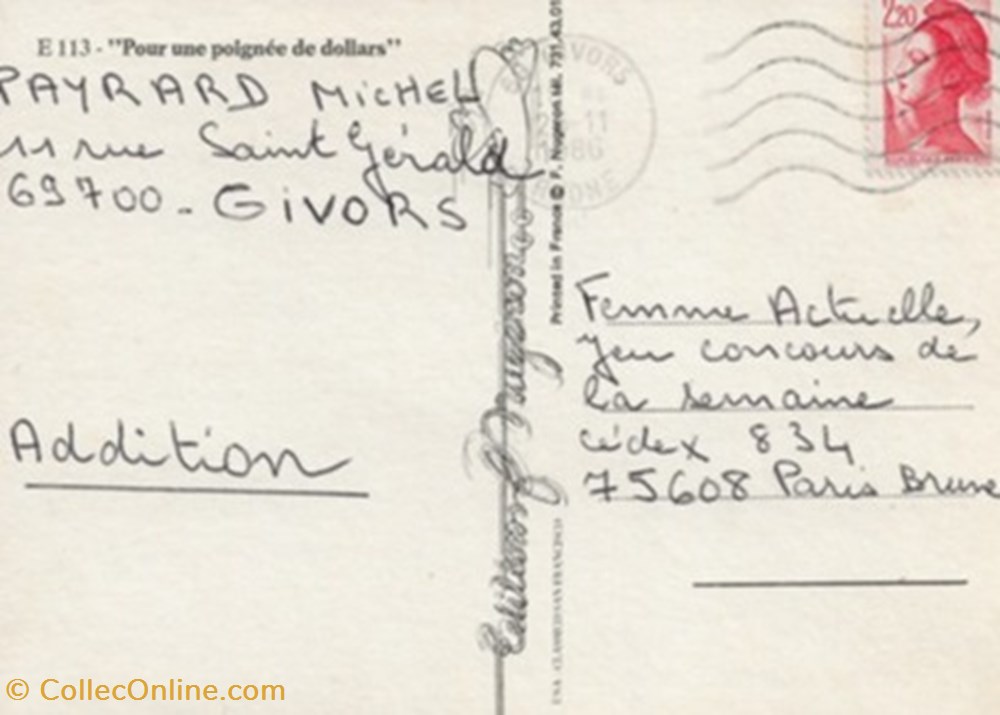 E 113 - "Pour une poignée de dollars"
PAYRARD MICHEL
11 rue Saint Gérald
69700 - GIVORS
Addition
Editions F. Nugeron
Printed in France © F. Nugeron tél. 731.43.01
USA - CLASSICS SAN FRANCISCO
GIVORS
11
1986
RHONE
2,20
Femme Actuelle,
Jeu concours de
la semaine
Cédex 834
75608 Paris Brune
© CollecOnline.com